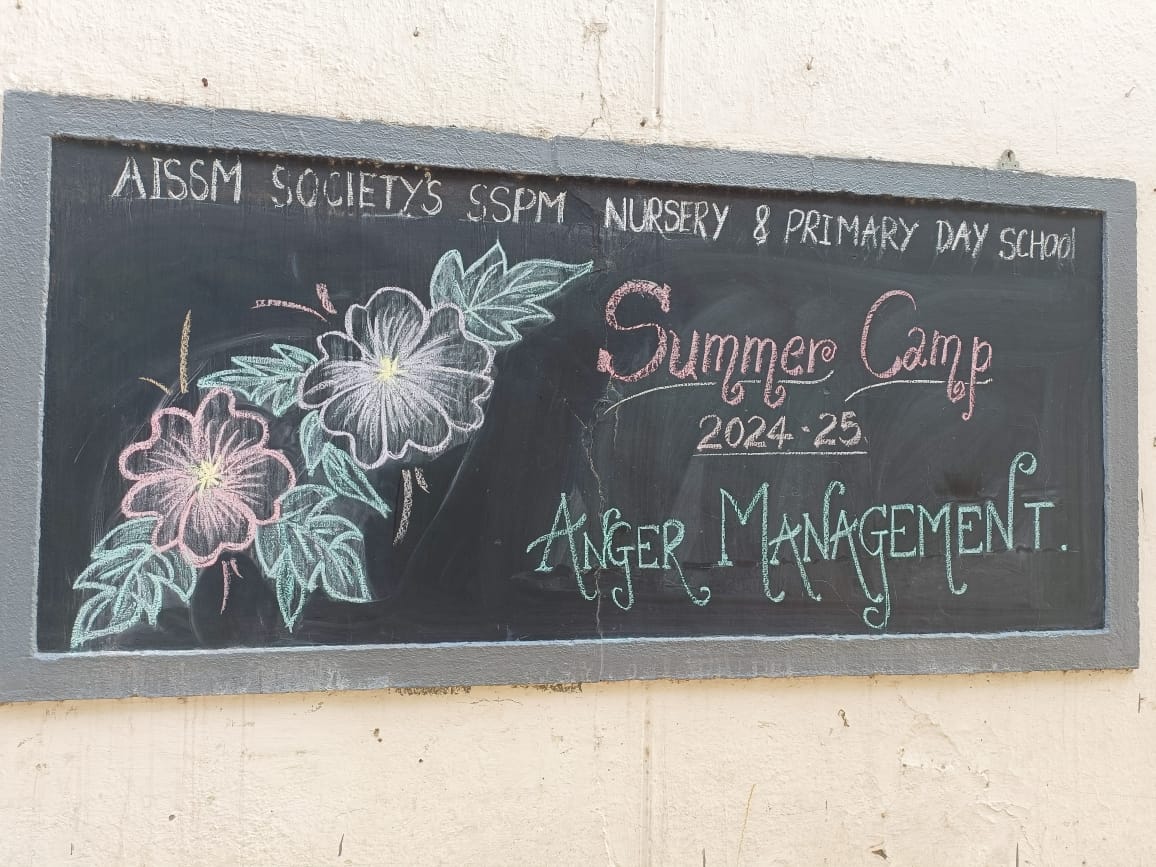 AISSM SOCIETY'S SSPM NURSERY & PRIMARY DAY SCHOOL
Summer Camp
2024-25
ANGER MANAGEMENT.